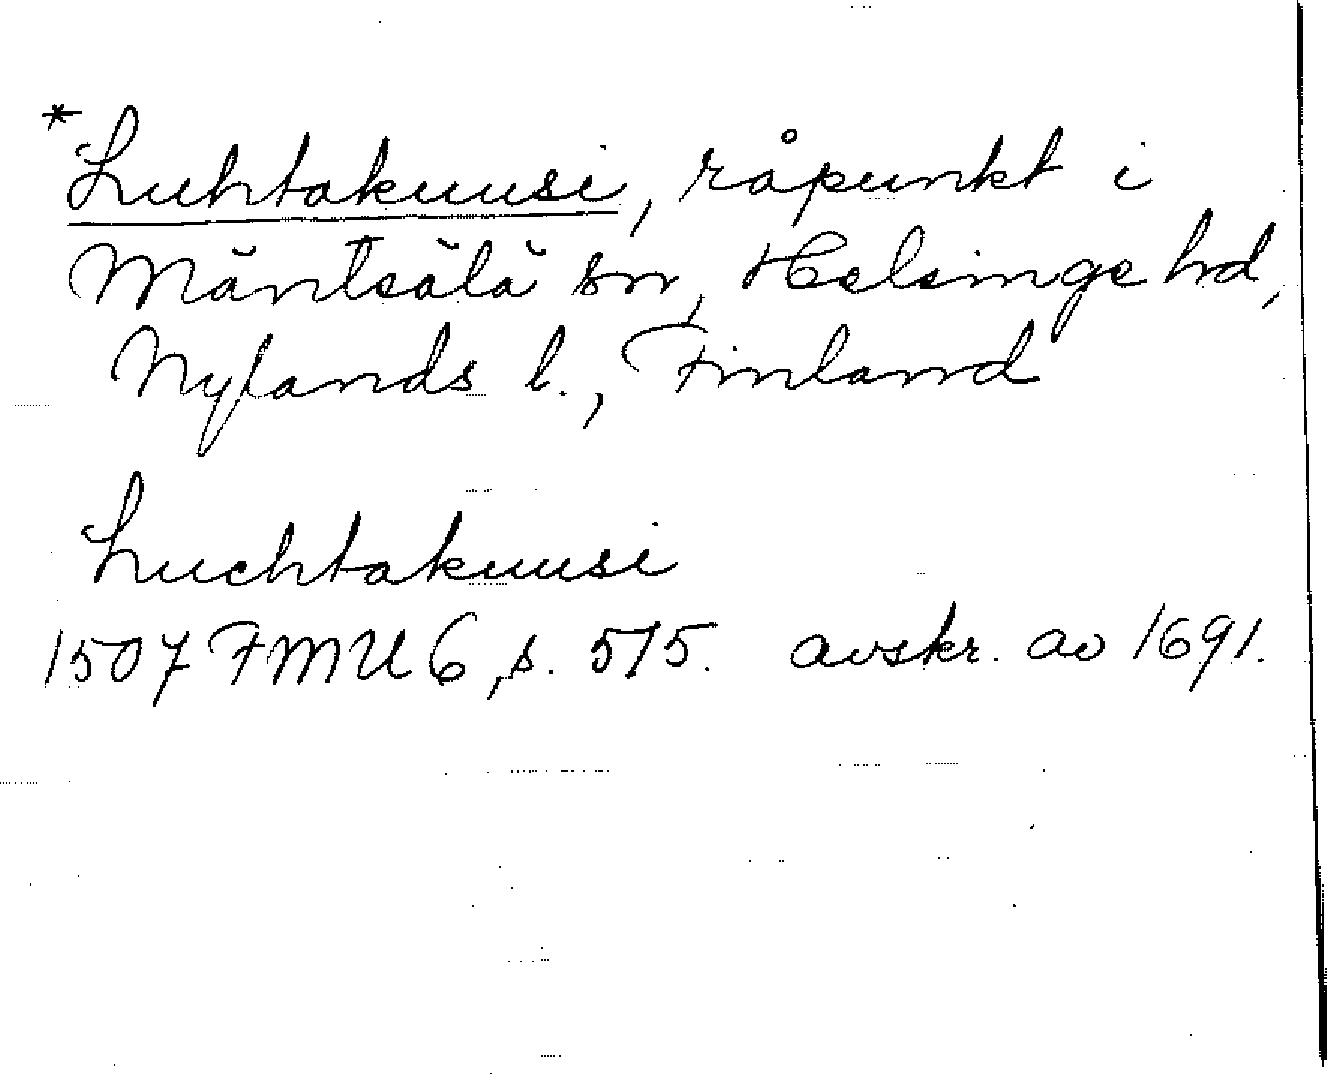 *Luhtakuusi, råpunkt i
Mäntsälä sn, Helsinge hd,
Nylands l., Finland
Luchtakuusi
1507 FMU 6, s. 515. avskr. av 1691.